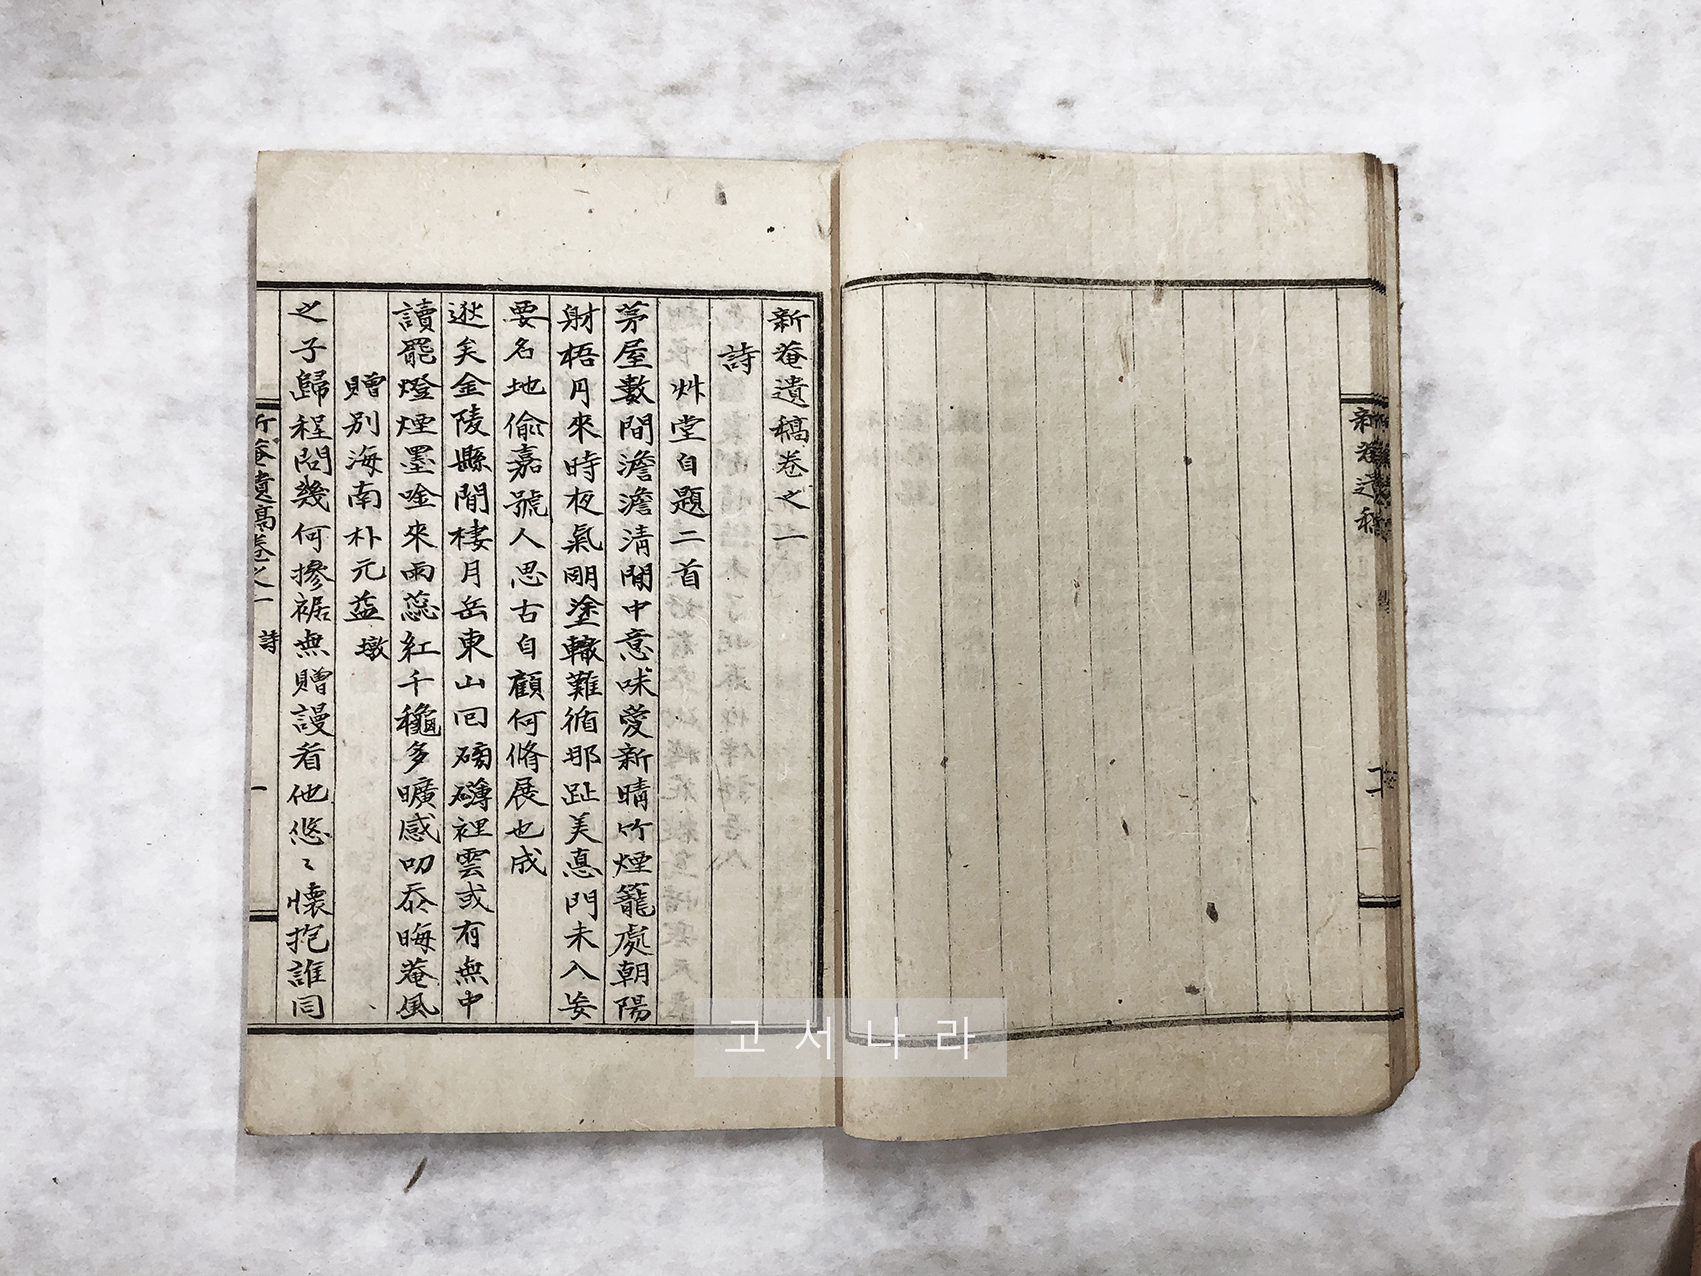 新菴遺稿
二
新菴遺稿卷之一
詩
艸堂自題二首
茅屋數間澹澹淸閒中意味愛新晴竹煙籠處朝陽
射梧月來時夜氣明塗轍難循那趾美悳門未入妄
要名地偷嘉號人思古自顧何脩展也成
逖矣金陵縣閒棲月岳東山回磅礴裡雲或有無中
讀罷燈煙墨唫來雨蕊紅千龝多曠感叨忝晦菴風
贈別海南朴元益墩
之子歸程問幾何摻裾無贈謾看他悠〻懷抱誰同
新菴遺稿卷之一 詩
一
고서나라